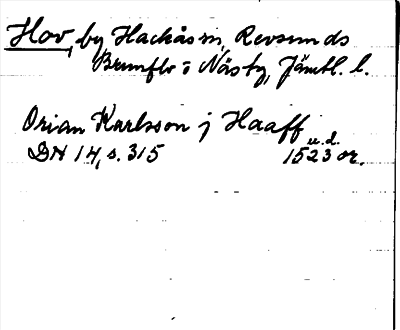 Hov, by Hackås sn, Revsunds
Brunflo o Näs tg, Jämtl. l.
Örian Karlsson j Haaff
u.d.
DN 14, s. 315 1523 or.